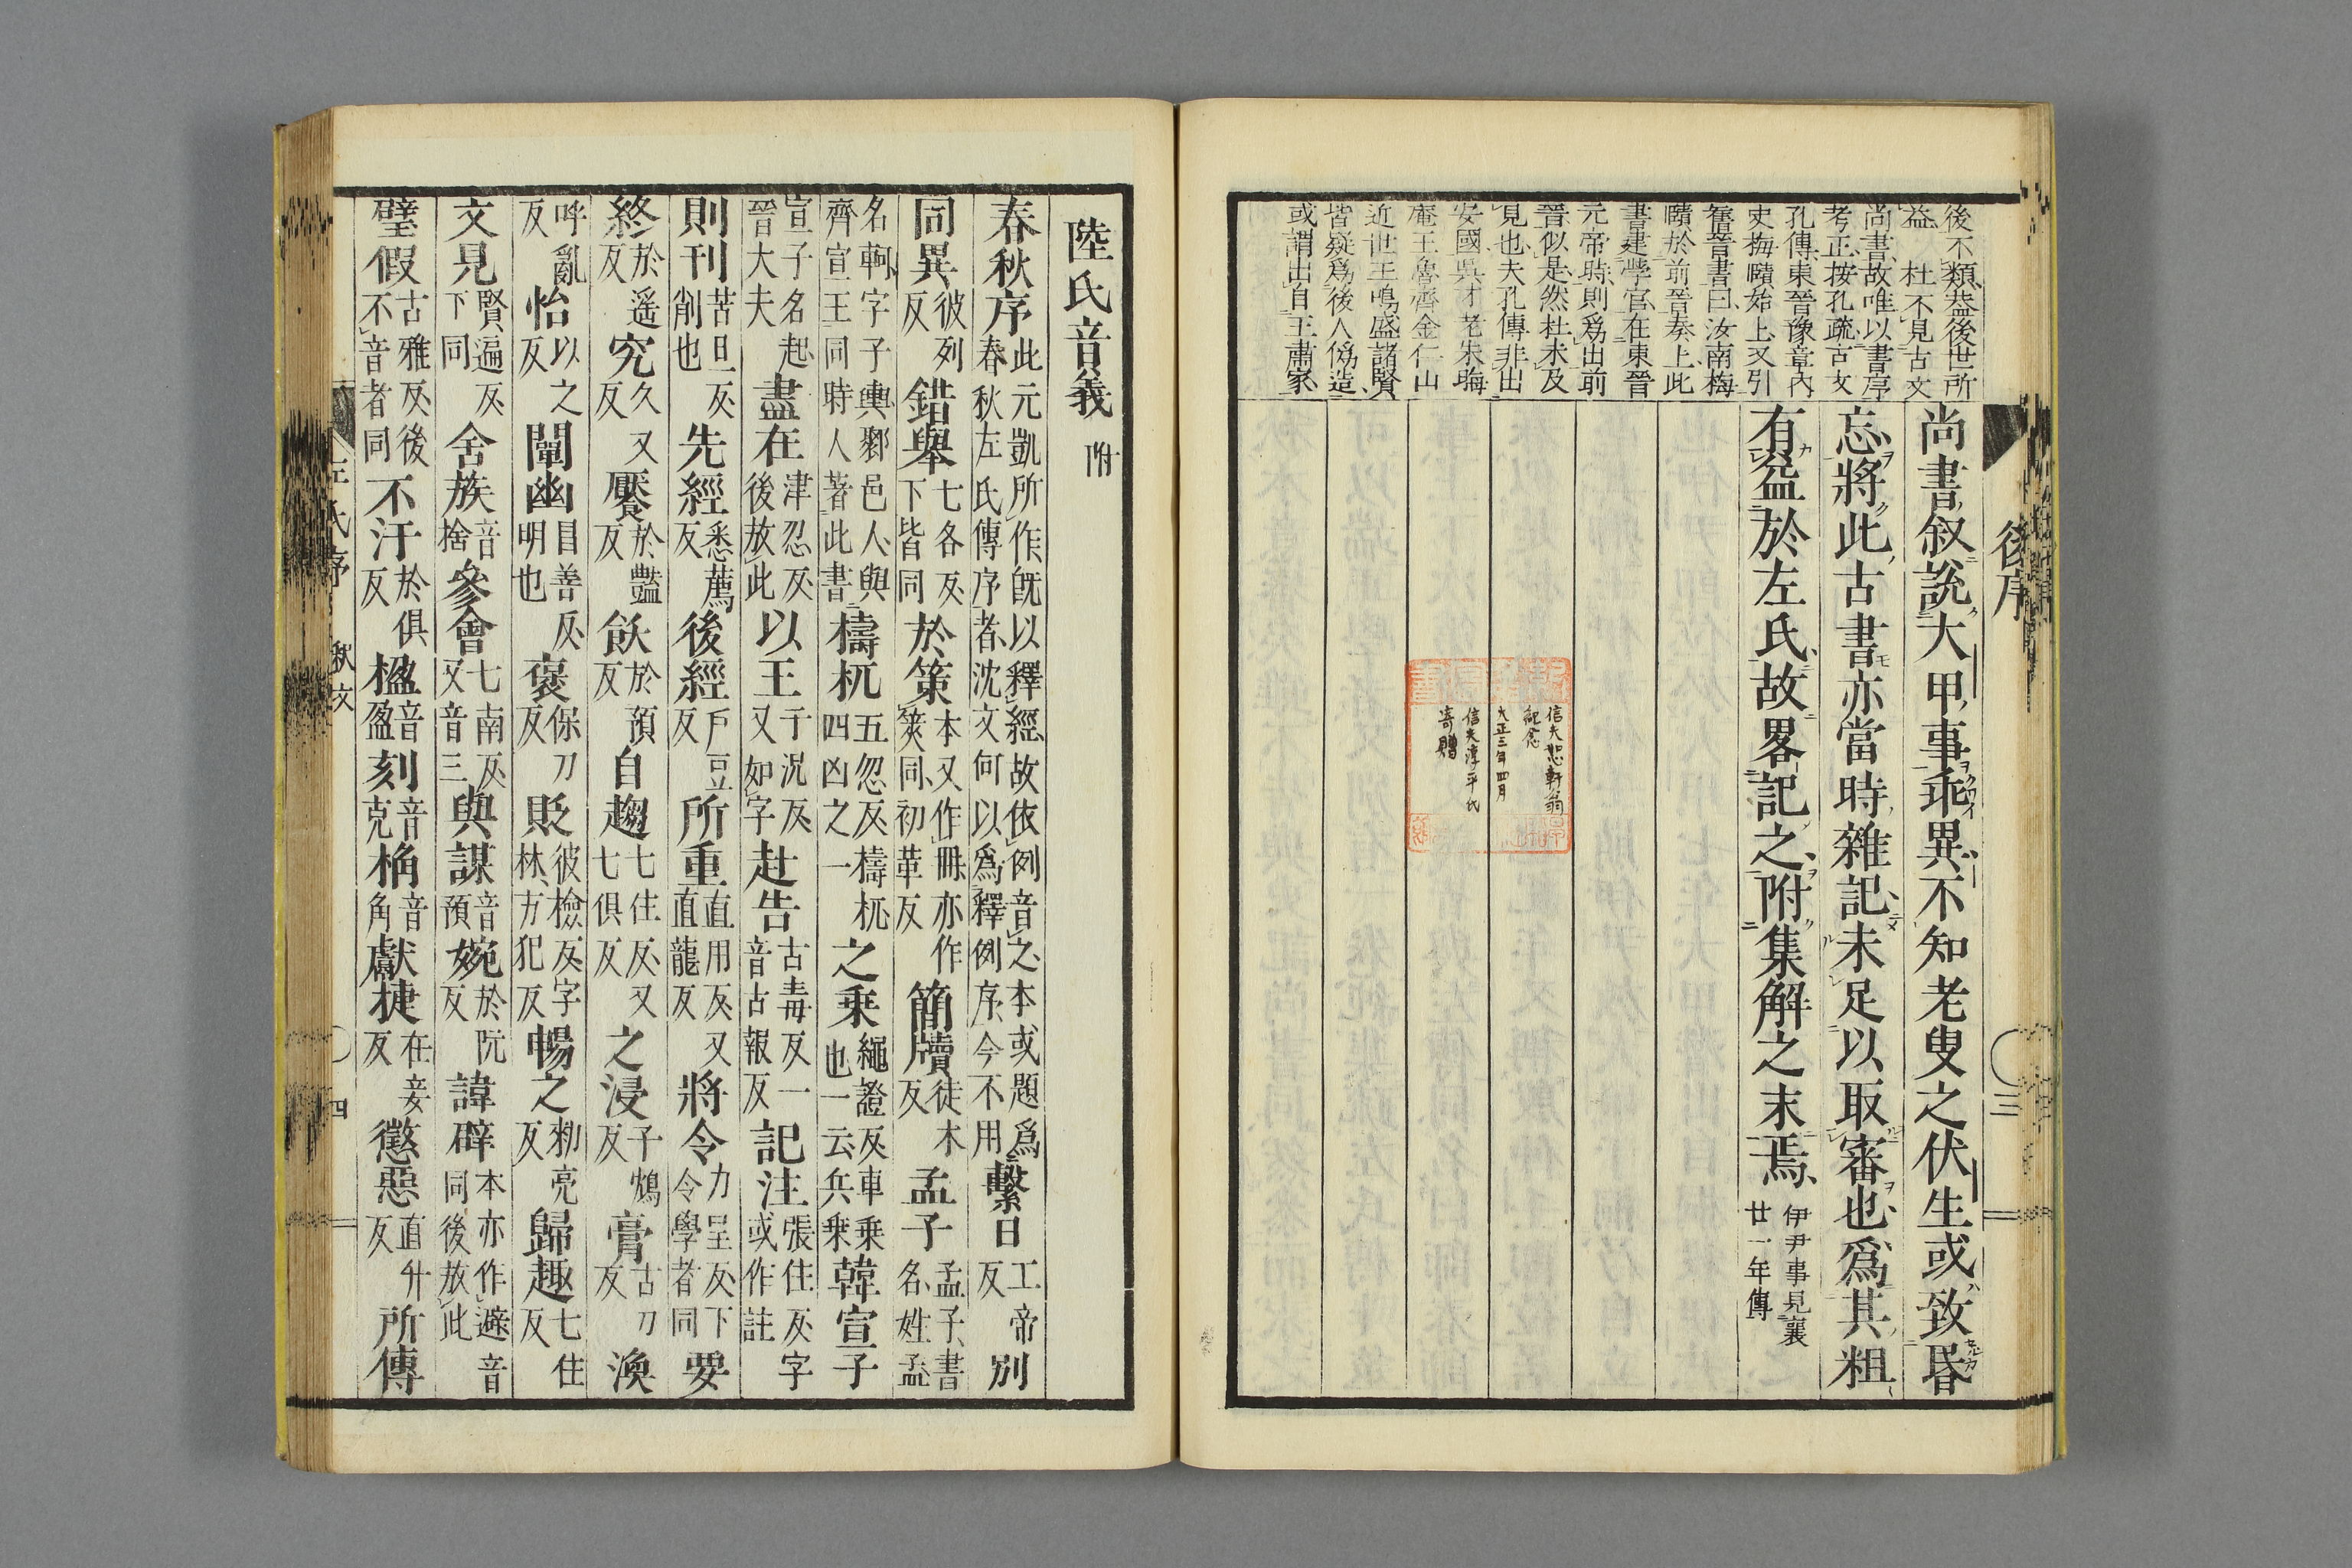 後序
三
後不類葢後世所
益
杜不見古文
尚書故唯以書序
考正按孔疏古文
孔傳東晉豫章内
史梅賾始上又引
舊晉書曰汝南梅
賾於前晉奏上此
書建學官在東晉
元帝時則爲出前
晉似是然杜未及
見也夫孔傳非出
安國吳才老朱晦
庵王魯齊金仁山
近世王鳴盛諸賢
皆疑爲後人僞造
或謂出自王肅家
尚書叙説大甲事乖異不知老叟之伏生或致昬
忘將此古書亦當時雜記未足以取審也爲其粗
有益於左氏故畧記之附集解之末焉 伊尹事見襄
廿一年傳
信夫恕軒翁
紀念
大正三年四月
信夫淳平氏
寄贈
陸氏音義 附
春秋序 此元凱所作旣以釋經故依例音之本或題爲
春秋左氏傳序者沈文何以爲釋例序今不用 繫日 工帝
反 別
同異 彼列
反 錯舉 七各反
下皆同 於策 本又作冊亦作
筴同初革反 簡牘 徒木
反 孟子 孟子書
名姓孟
名軻字子輿鄒邑人與
齊宣王同時人著此書 檮杌 五忽反檮杌
四凶之一 之乗 繩證反車乗
也一云兵乗 韓宣子
宣子名起
晉大夫 盡在 津忍反
後放此 以王 于況反
又如字 赴告 古毒反一
音古報反 記注 張住反字
或作註
則刊 苦旦反
削也 先經 悉薦
反 後經 戸豆
反 所重 直用反又
直龍反 將令 力呈反下
令學者同 要
終 於遥
反 究 久又
反 饜 於豔
反 飫 於預
反 自趨 七住反又
七俱反 之浸 子鴆
反 膏 古刀
反 渙
呼亂
反 怡 以之
反 闡幽 昌善反
明也 褒 保刀
反 貶 彼檢反字
林方犯反 暢之 勑亮
反 歸趣 七住
反
文見 賢遍反
下同 舍族 音
捨 參會 七南反
又音三 與謀 音
預 婉 於阮
反 諱辟 本亦作避音
同後放此
璧假 古雅反後
不音者同 不汙 於俱
反 楹 音
盈 刻 音
克 桷 音
角 獻捷 在妾
反 懲惡 直升
反 所傳
左氏序
四